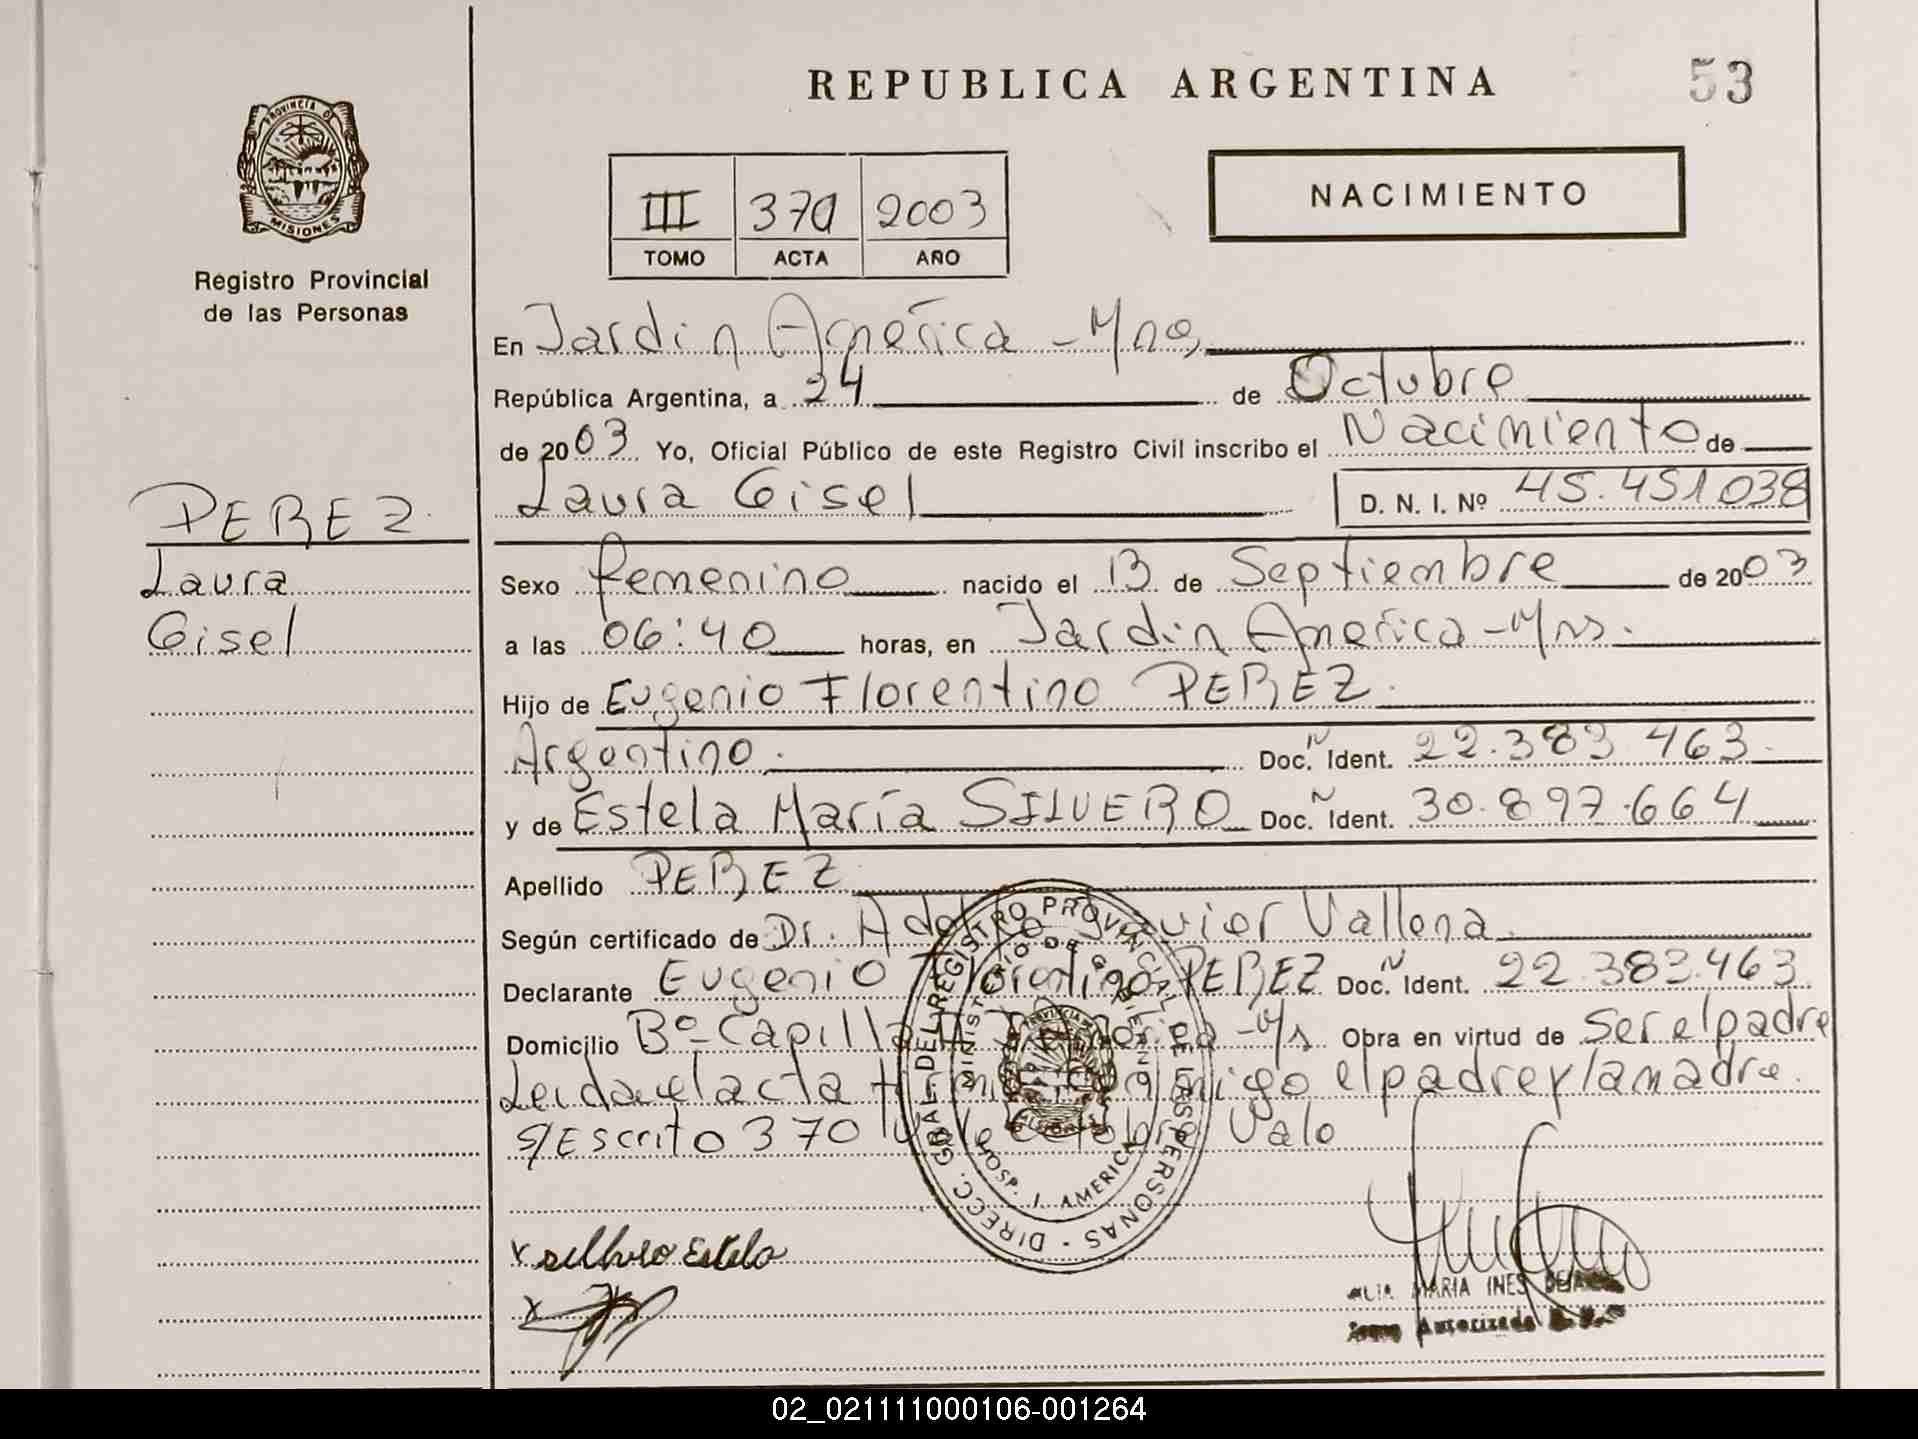 REPUBLICA ARGENTINA
53
PROVINCIA DE
MISIONES
Registro Provincial
de las Personas
III 370 2003
TOMO ACTA AÑO
NACIMIENTO
En Jardin América - Mnes
República Argentina, a 24 de Octubre
de 2003 Yo, Oficial Público de este Registro Civil inscribo el Nacimiento de
Laura Gisel D. N. I. Nº 45.451.038
PEREZ
Laura
Gisel
Sexo femenino nacido el 13 de Septiembre de 2003
a las 06:40 horas, en Jardin América - Mns.
Hijo de Eugenio Florentino PEREZ.
Argentino. Doc. N Ident. 22.383.463.
y de Estela María SILVERO Doc. N Ident. 30.897.664
Apellido PEREZ
Según certificado de Dr. Adolfo Javier Vallena
Declarante Eugenio Florentino PEREZ Doc. N Ident. 22.383.463
Domicilio Bº-Capilla J. América - Ms Obra en virtud de Ser el padre
Leida el acta firman conmigo el padre y la madre.
s/Escrito 370 Octubre Valo
DIREC. GRAL. DEL REGISTRO PROVINCIAL DE LAS PERSONAS
MINISTERIO DE GOBIERNO
HOSP. J. AMERICA
x Silvero Estela
x
MARIA INES
Autorizada
02_021111000106-001264